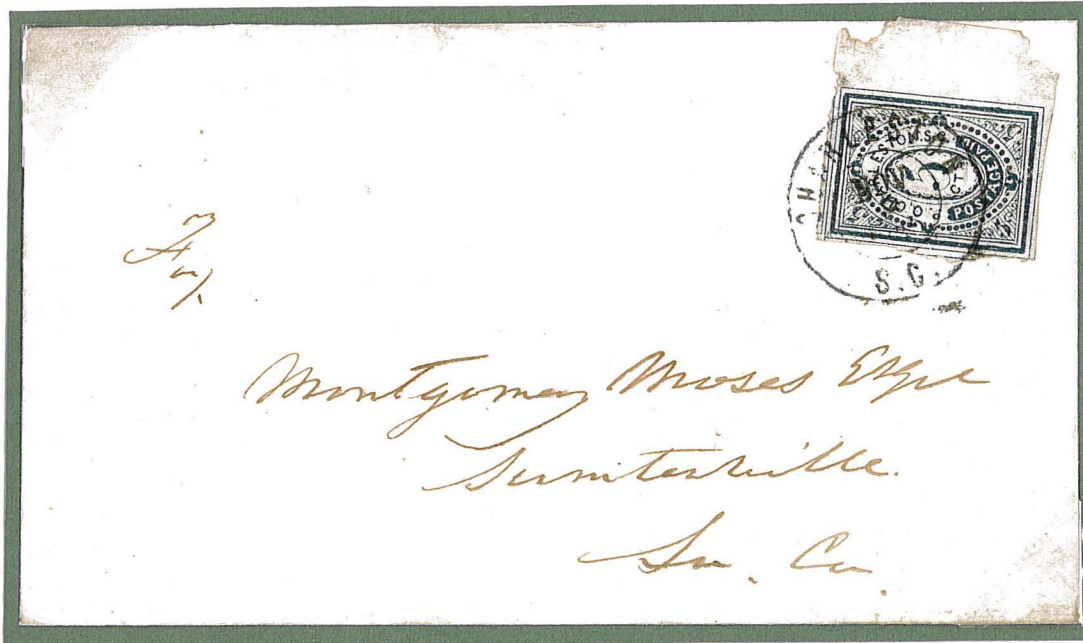 CHARLESTON
S.C.
P.O. CHARLESTON. S.C.
POSTAGE PAID
5
CTS
For
Montgomery Moses Esqre
Sumterville.
So. Ca